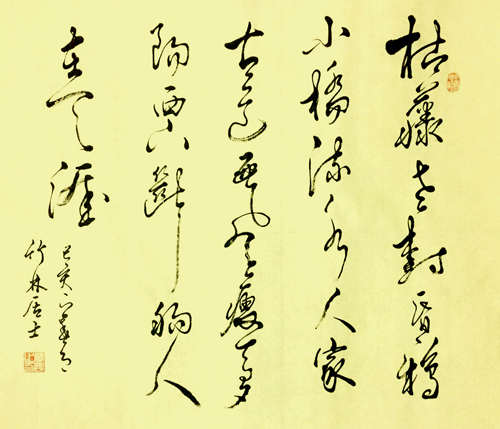 枯藤老樹昏鴉
小橋流水人家
古道西風瘦馬夕
陽西下斷腸人
在天涯
己亥
竹林居士